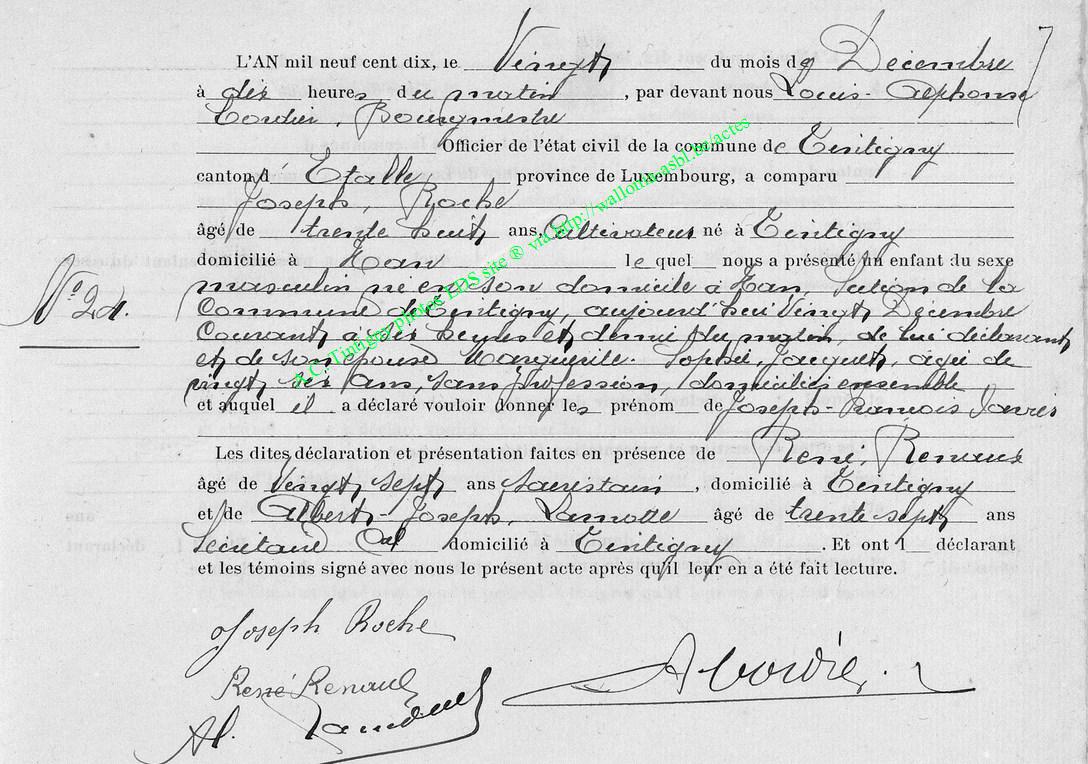 L'AN mil neuf cent dix, le Vingt du mois de Décembre
à dix heures du matin, par devant nous Louis-Alphonse
Cordier, Bourgmestre
Officier de l'état civil de la commune de Tintigny
canton d' Etalle province de Luxembourg, a comparu
Joseph, Roche
âgé de trente huit ans, Cultivateur né à Tintigny
domicilié à Han le quel nous a présenté un enfant du sexe
masculin né en son domicile à Han, Section de la
Commune de Tintigny, aujourd'hui Vingt Décembre
N° 24.
Courant à six heures et demie du matin, de lui déclarant
et de son épouse Marguerite-Sophie, Jacquet, agée de
vingt six ans, sans profession, domiciliés ensemble
et auquel il a déclaré vouloir donner les prénom de Joseph-François Xavier
Les dites déclaration et présentation faites en présence de René, Renaux
âgé de Vingt sept ans sacristain, domicilié à Tintigny
et de Albert-Joseph, Lamotte âgé de trente sept ans
Secrétaire Cal domicilié à Tintigny. Et ont l déclarant
et les témoins signé avec nous le présent acte après qu'il leur en a été fait lecture.
Joseph Roche
René Renaux
Al.
A.C. Tintigny photos EDS site ® via http://wallonia-asbl.be/actes